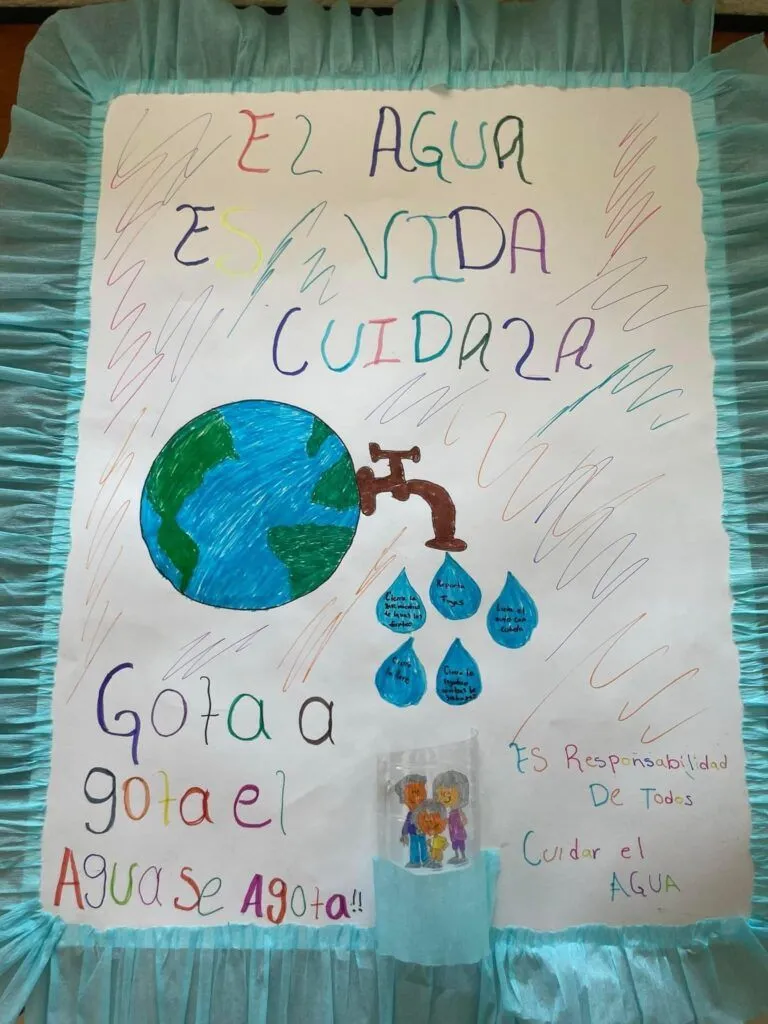 El AGUA
ES VIDA
CUIDALA
Cierra la
de lavas los
dientes
Reporta
Fugas
Lava el
auto con
cubeta
Cierra
la llave
Cierra la
Gota a
gota el
Agua se Agota!!
ES Responsabilidad
De Todos
Cuidar el
AGUA